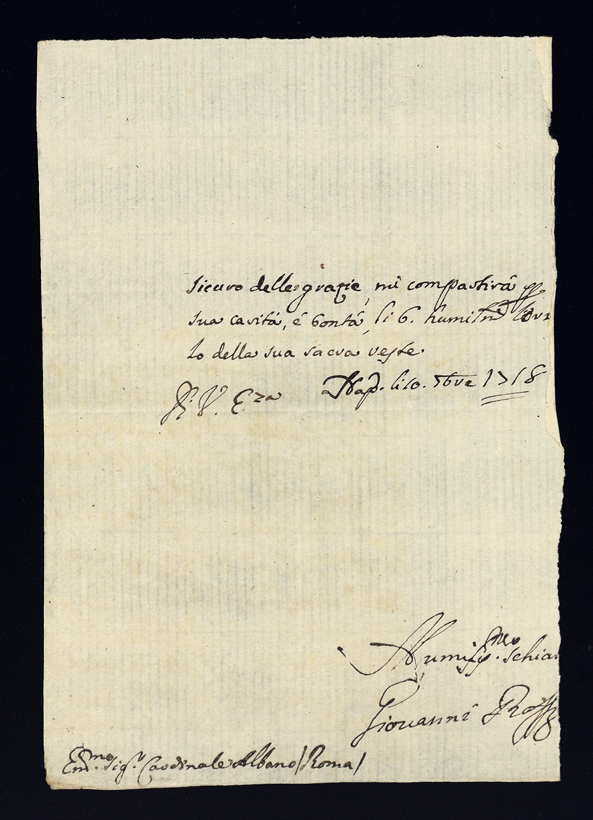 sicuro delle grazie, mi compatirà p
sua carità, é bontà, li b. humilm.
lo della sua sacra veste.
Nap. li 10. 1718
D. V. Eza
Humiliss.mo schia
Giovanni Rossi
Em.mo Sig.r Cardinale Albano (Roma)